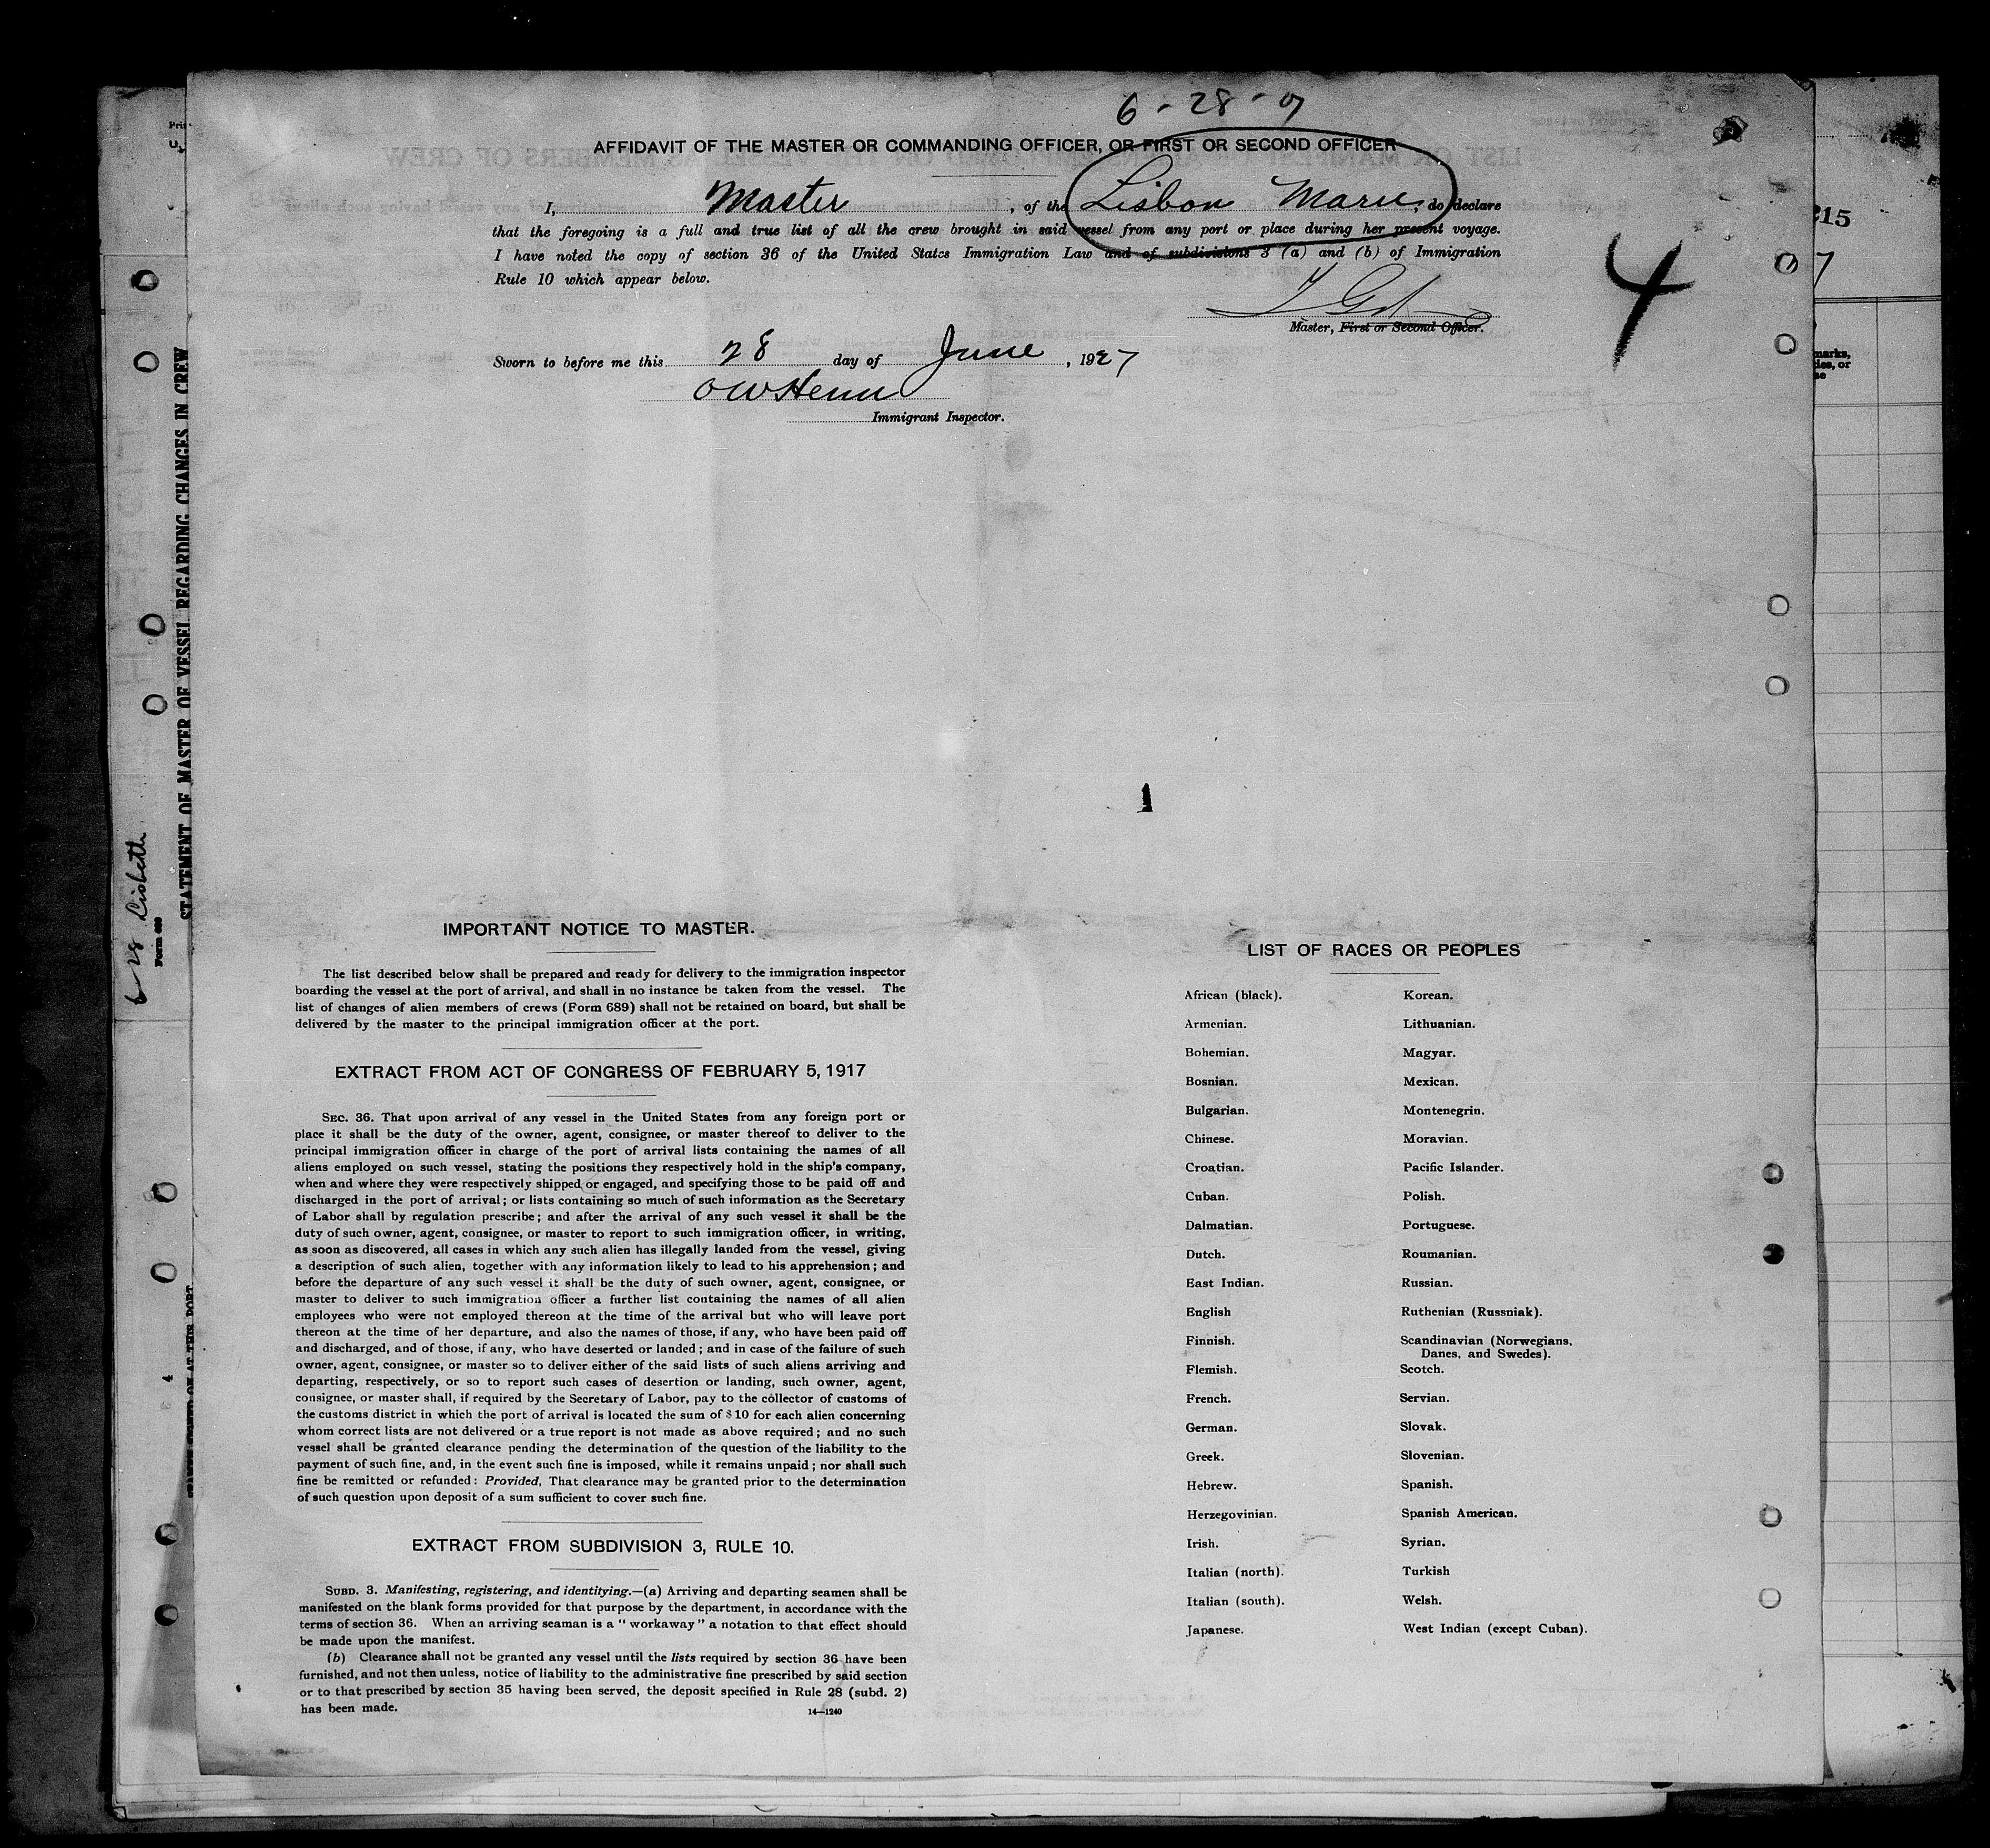 6 - 28 - 7
AFFIDAVIT OF THE MASTER OR COMMANDING OFFICER, OR FIRST OR SECOND OFFICER
I, Master , of the Lisbon Maru, do declare
that the foregoing is a full and true list of all the crew brought in said vessel from any port or place during her present voyage.
I have noted the copy of section 36 of the United States Immigration Law and of subdivisions 3 (a) and (b) of Immigration
Rule 10 which appear below.
Master, First or Second Officer.
Sworn to before me this 28 day of June , 1927
Immigrant Inspector.
4
IMPORTANT NOTICE TO MASTER.
The list described below shall be prepared and ready for delivery to the immigration inspector
boarding the vessel at the port of arrival, and shall in no instance be taken from the vessel. The
list of changes of alien members of crews (Form 689) shall not be retained on board, but shall be
delivered by the master to the principal immigration officer at the port.
EXTRACT FROM ACT OF CONGRESS OF FEBRUARY 5, 1917
SEC. 36. That upon arrival of any vessel in the United States from any foreign port or
place it shall be the duty of the owner, agent, consignee, or master thereof to deliver to the
principal immigration officer in charge of the port of arrival lists containing the names of all
aliens employed on such vessel, stating the positions they respectively hold in the ship's company,
when and where they were respectively shipped or engaged, and specifying those to be paid off and
discharged in the port of arrival; or lists containing so much of such information as the Secretary
of Labor shall by regulation prescribe; and after the arrival of any such vessel it shall be the
duty of such owner, agent, consignee, or master to report to such immigration officer, in writing,
as soon as discovered, all cases in which any such alien has illegally landed from the vessel, giving
a description of such alien, together with any information likely to lead to his apprehension; and
before the departure of any such vessel it shall be the duty of such owner, agent, consignee, or
master to deliver to such immigration officer a further list containing the names of all alien
employees who were not employed thereon at the time of the arrival but who will leave port
thereon at the time of her departure, and also the names of those, if any, who have been paid off
and discharged, and of those, if any, who have deserted or landed; and in case of the failure of such
owner, agent, consignee, or master so to deliver either of the said lists of such aliens arriving and
departing, respectively, or so to report such cases of desertion or landing, such owner, agent,
consignee, or master shall, if required by the Secretary of Labor, pay to the collector of customs of
the customs district in which the port of arrival is located the sum of $10 for each alien concerning
whom correct lists are not delivered or a true report is not made as above required; and no such
vessel shall be granted clearance pending the determination of the question of the liability to the
payment of such fine, and, in the event such fine is imposed, while it remains unpaid; nor shall such
fine be remitted or refunded: Provided, That clearance may be granted prior to the determination
of such question upon deposit of a sum sufficient to cover such fine.
EXTRACT FROM SUBDIVISION 3, RULE 10.
SUBD. 3. Manifesting, registering, and identifying.—(a) Arriving and departing seamen shall be
manifested on the blank forms provided for that purpose by the department, in accordance with the
terms of section 36. When an arriving seaman is a "workaway" a notation to that effect should
be made upon the manifest.
(b) Clearance shall not be granted any vessel until the lists required by section 36 have been
furnished, and not then unless, notice of liability to the administrative fine prescribed by said section
or to that prescribed by section 35 having been served, the deposit specified in Rule 28 (subd. 2)
has been made.
14—1240
LIST OF RACES OR PEOPLES
African (black).
Armenian.
Bohemian.
Bosnian.
Bulgarian.
Chinese.
Croatian.
Cuban.
Dalmatian.
Dutch.
East Indian.
English
Finnish.
Flemish.
French.
German.
Greek.
Hebrew.
Herzegovinian.
Irish.
Italian (north).
Italian (south).
Japanese.
Korean.
Lithuanian.
Magyar.
Mexican.
Montenegrin.
Moravian.
Pacific Islander.
Polish.
Portuguese.
Roumanian.
Russian.
Ruthenian (Russniak).
Scandinavian (Norwegians,
Danes, and Swedes).
Scotch.
Servian.
Slovak.
Slovenian.
Spanish.
Spanish American.
Syrian.
Turkish
Welsh.
West Indian (except Cuban).
STATEMENT OF MASTER OF VESSEL REGARDING CHANGES IN CREW
Form 689
6-28 Lisbeth
4
215
7